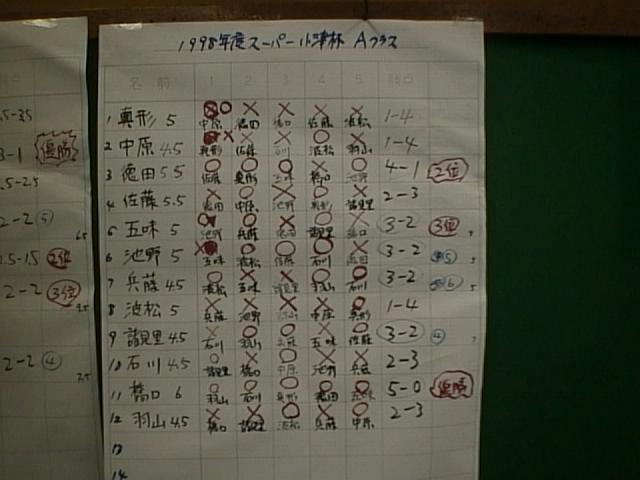 1998年度スーパー小津杯 Aクラス
名前 1 2 3 4 5 勝点
1 真形 5 中原 徳田 橋口 佐藤 波松 1-4
2 中原 4.5 真形 佐藤 石川 波松 羽山 1-4
3 徳田 5.5 佐藤 真形 五味 橋口 池野 4-1 2位
4 佐藤 5.5 徳田 中原 池野 真形 諸見里 2-3
5 五味 5 池野 兵藤 徳田 諸見里 橋口 3-2 3位
6 池野 5 五味 波松 佐藤 石川 徳田 3-2 5
7 兵藤 4.5 波松 五味 諸見里 羽山 石川 3-2 6
8 波松 5 兵藤 池野 羽山 中原 真形 1-4
9 諸見里 4.5 石川 羽山 兵藤 五味 佐藤 3-2 4
10 石川 4.5 諸見里 橋口 中原 池野 兵藤 2-3
11 橋口 6 羽山 石川 真形 徳田 五味 5-0 優勝
12 羽山 4.5 橋口 諸見里 波松 兵藤 中原 2-3
13
14
勝点
3-1 優勝
.5-2.5
2-2 5
.5-1.5 2位
2-2 3位
2-2 4